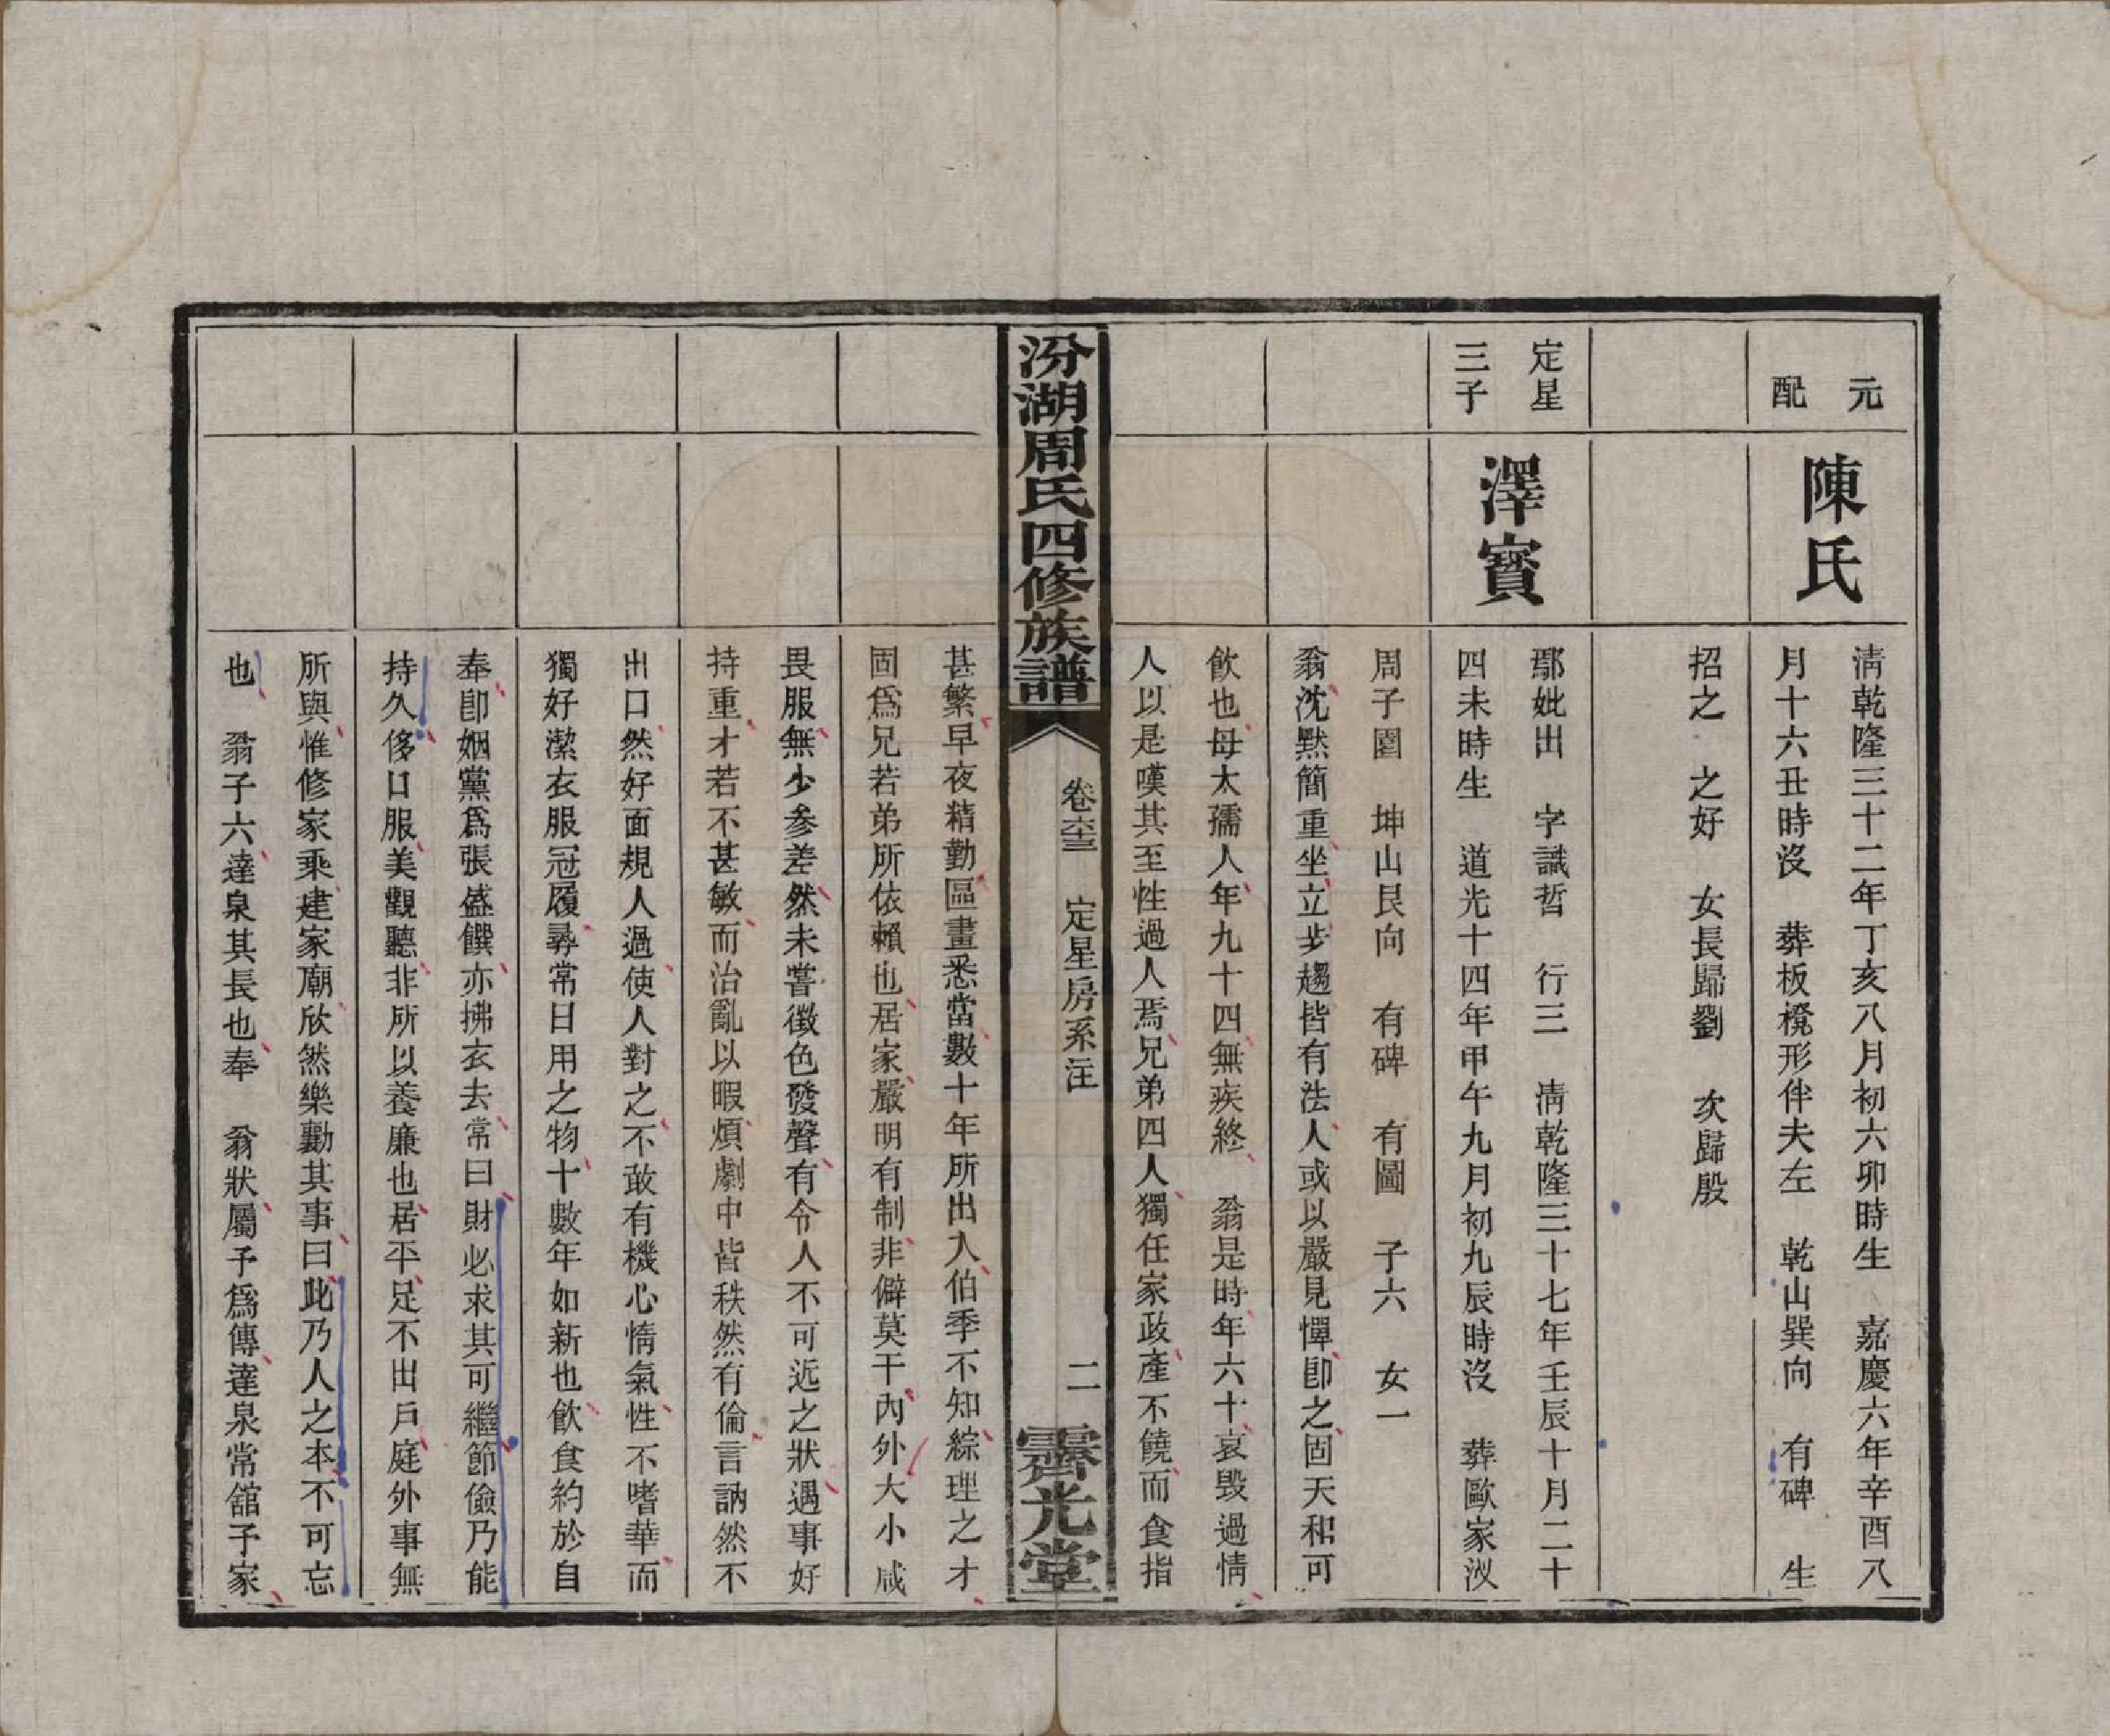 元配
陳氏
淸乾隆三十二年丁亥八月初六卯時生 嘉慶六年辛酉八
月十六丑時沒 葬板櫈形伴夫左 乾山巽向 有碑 生
招之 之好 女長歸劉 次歸殷
定星
三子
澤寶
鄢妣出 字識哲 行三 淸乾隆三十七年壬辰十月二十
四未時生 道光十四年甲午九月初九辰時沒 葬歐家㲼
周子園 坤山艮向 有碑 有圖 子六 女一
翁沈默簡重坐立步趨皆有法人或以嚴見憚卽之固天和可
飮也母太孺人年九十四無疾終 翁是時年六十哀毀過情
人以是嘆其至性過人焉兄弟四人獨任家政產不饒而食指
汾湖周氏四修族譜
卷六十三 定星房系注
二
霽光堂
甚繁早夜精勤區畫悉當數十年所出入伯季不知綜理之才
固爲兄若弟所依賴也居家嚴明有制非僻莫干內外大小咸
畏服無少參差然未嘗徵色發聲有令人不可近之狀遇事好
持重才若不甚敏而治亂以暇煩劇中皆秩然有倫言訥然不
出口然好面規人過使人對之不敢有機心惰氣性不嗜華而
獨好潔衣服冠履尋常日用之物十數年如新也飮食約於自
奉卽姻黨爲張盛饌亦拂衣去常曰財必求其可繼節儉乃能
持久侈口服美觀聽非所以養廉也居平足不出戶庭外事無
所與惟修家乘建家廟欣然樂勷其事曰此乃人之本不可忘
也 翁子六達泉其長也奉 翁狀屬予爲傳達泉常舘予家